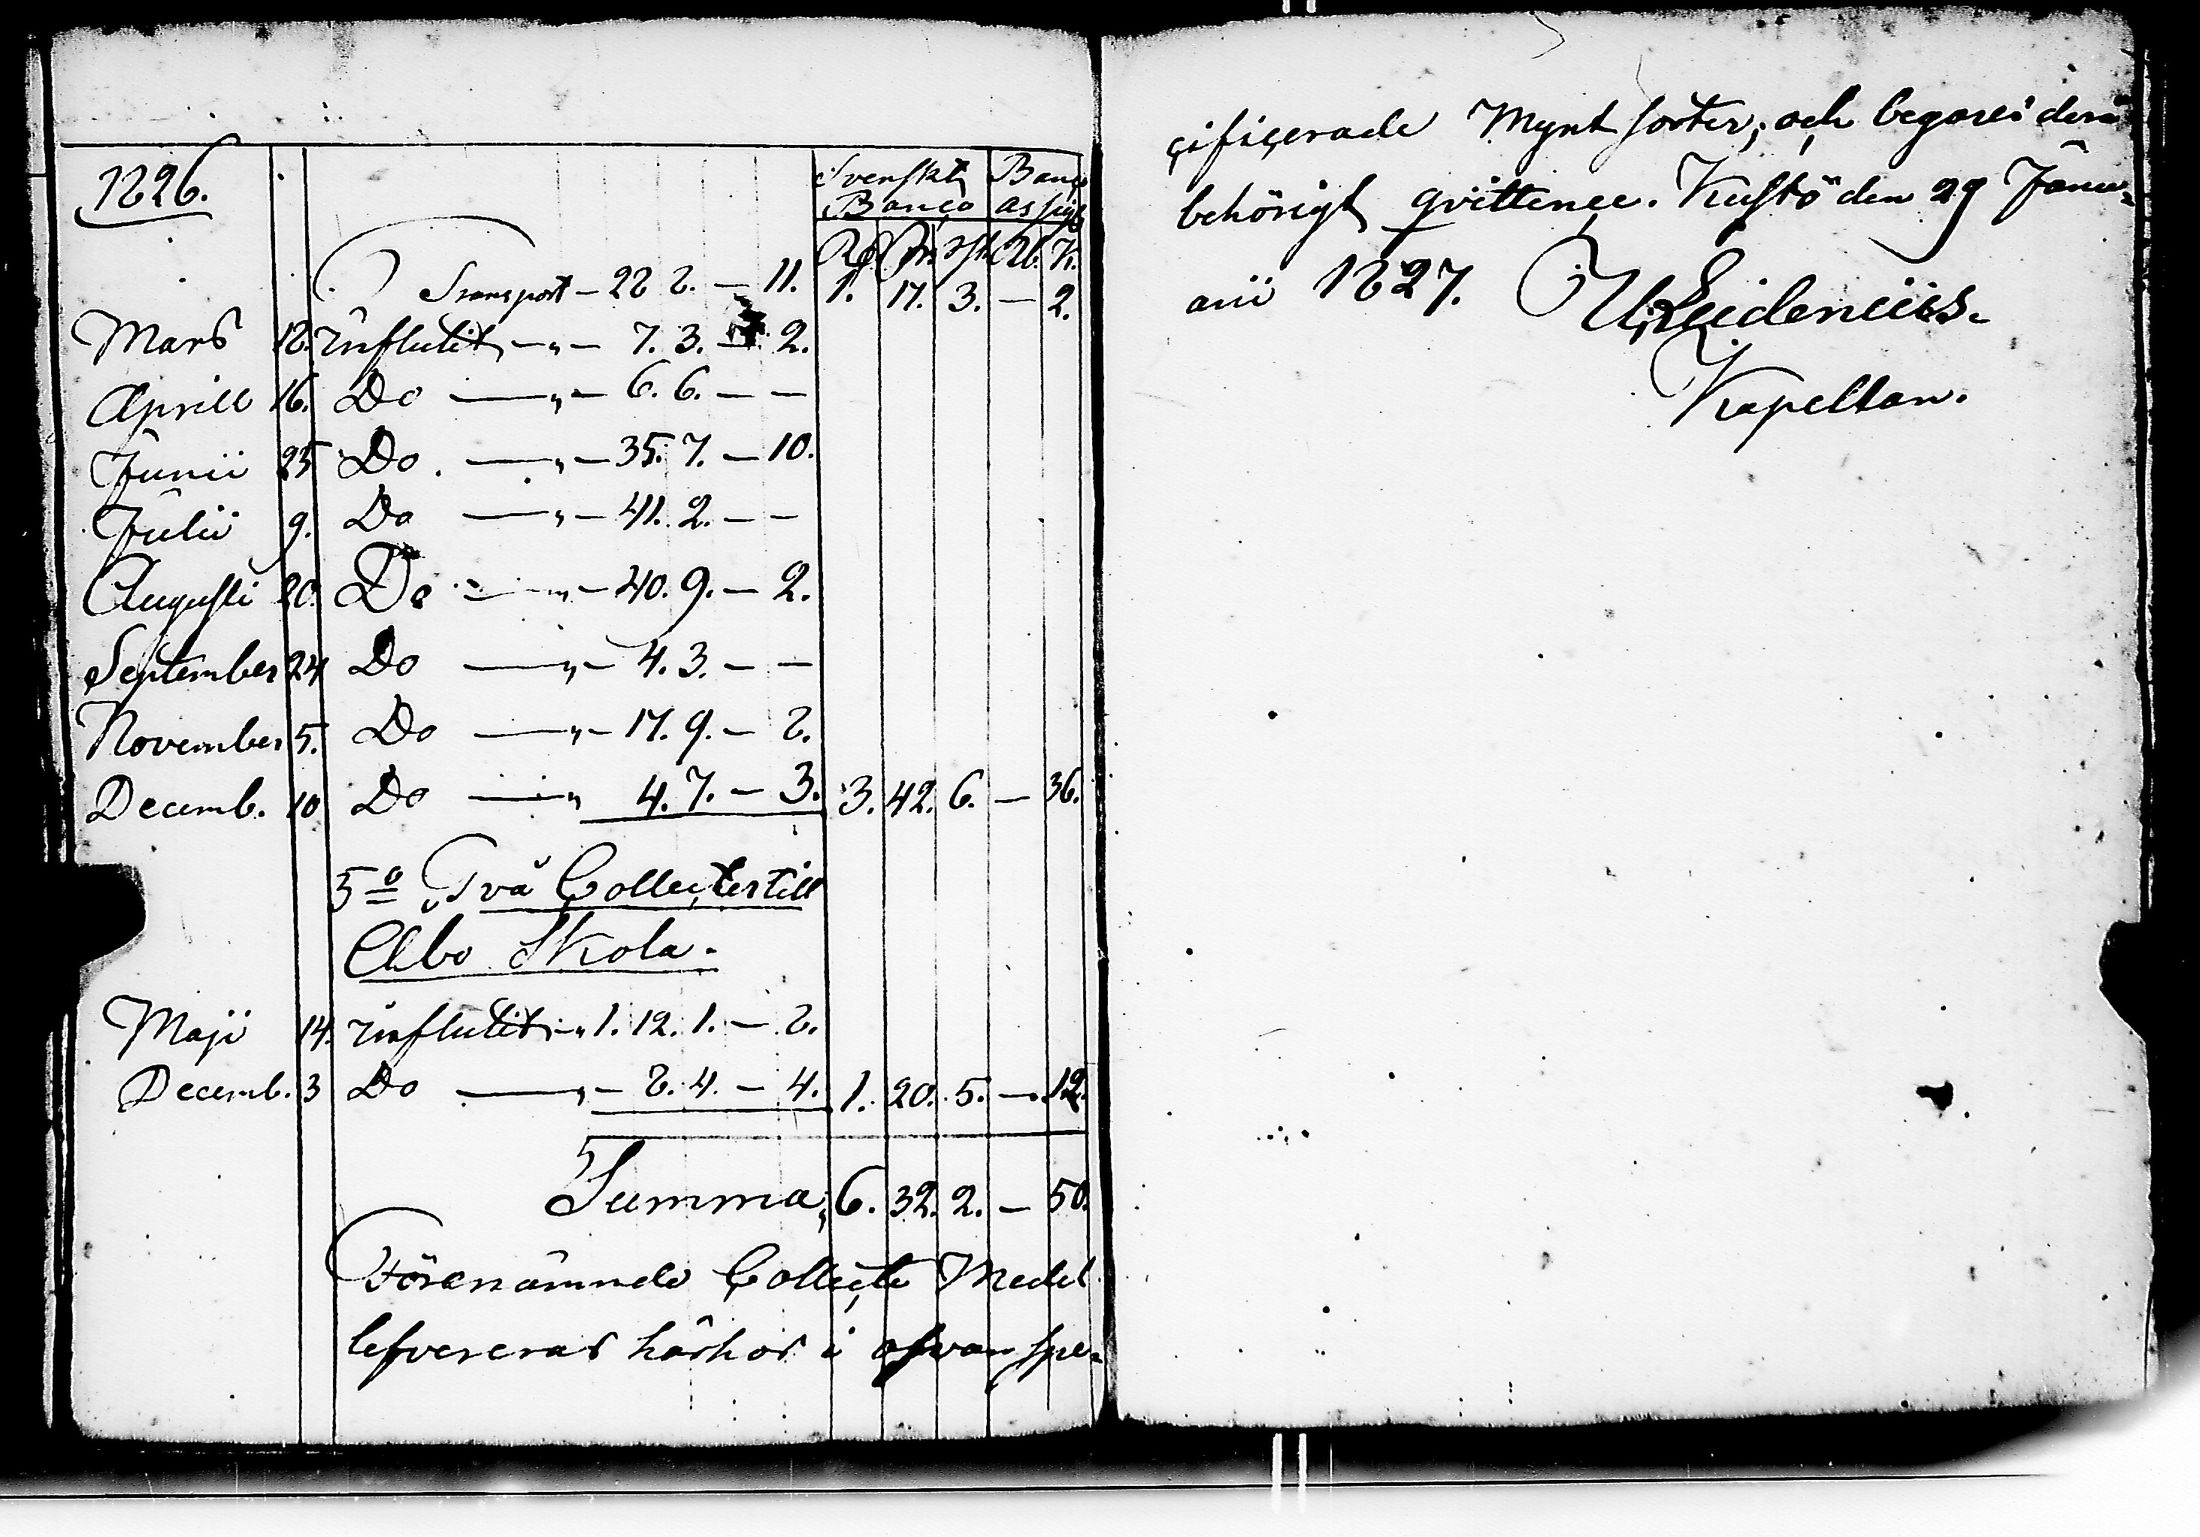 1826.
Svenskt Banco
Banco assigt
Rd. sk. rst. Rb. K.
Transport – 28 8. – 11. 1. 17. 3. – 2.
Mars 12. influtit – „ – 7. 3. – 2.
Aprill 16. Do — „ – 6. 6. – –
Junii 25 Do. — „ – 35. 7. – 10.
Julii 9. Do — „ – 41. 2. – –
Augusti 20. Do — „ – 40. 9. – 2.
September 24 Do — „ – 4. 3. – –
November 5. Do — „ – 17. 9. – 8.
Decemb. 10 Do — „ 4. 7. – 3. 3. 42. 6. – 36.
5o Två Collecter till
Åbo Skola.
Maji 14. influtit – „ 1. 12. 1. – 8.
Decemb. 3 Do — „ – 8. 4. – 4. 1. 20. 5. – 12.
Summa, 6. 32. 2. – 50.
Förenämnde Collecte Medel
lefvereras härhos i ofvan spe-
cificerade Mynt sorter; och begäres derå
behörigt qvittence. Kustö den 29 Janu-
arii 1827.
Kapellan.